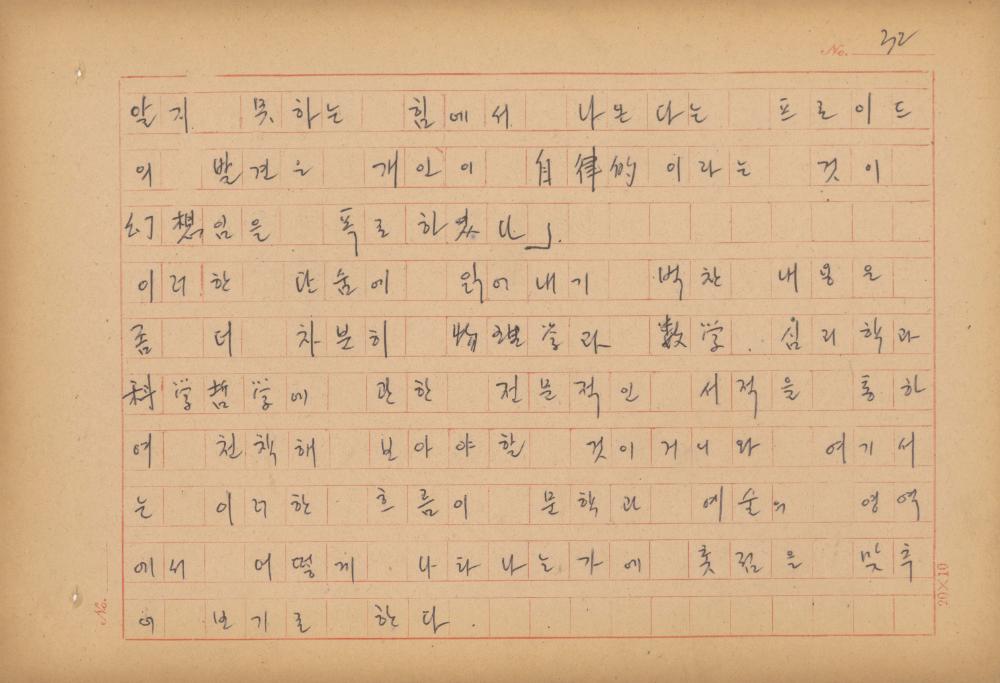 No. 32
알지 못하는 힘에서 나온다는 프로이드
의 발견은 개인이 自律的이라는 것이
幻想임을 폭로하였다」.
이러한 단숨에 읽어내기 벅찬 내용은
좀 더 차분히 物理学과 数学. 심리학과
科学哲学에 관한 전문적인 서적을 통하
여 천착해 보아야할 것이거니와 여기서
는 이러한 흐름이 문학과 예술의 영역
에서 어떻게 나타나는가에 촛점을 맞추
어 보기로 한다.
No.
20×10